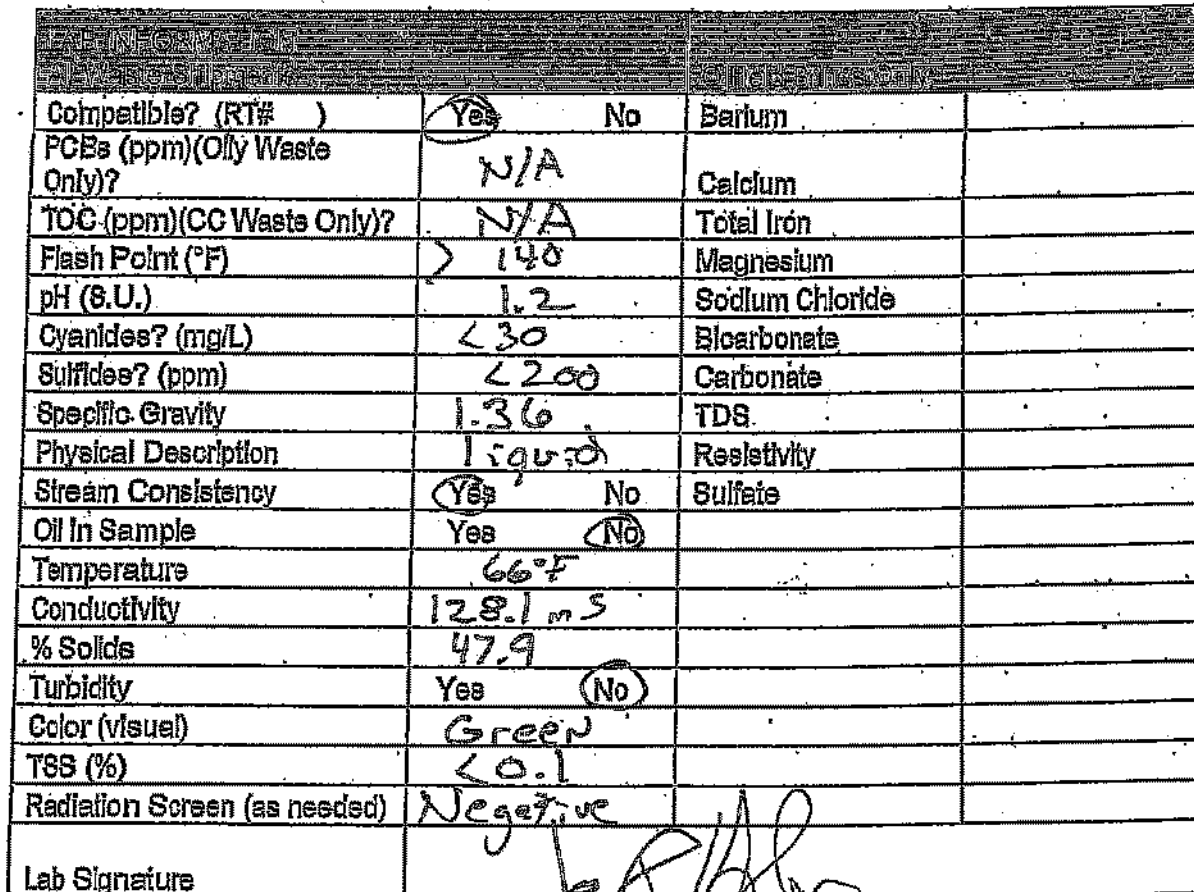 LAB INFORMATION
All Waste Shipments
Compatible? (RT# ) Yes No Barium
PCBs (ppm)(Oily Waste
Only)? N/A Calcium
TOC (ppm)(CC Waste Only)? N/A Total Iron
Flash Point (°F) > 140 Magnesium
pH (S.U.) 1.2 Sodium Chloride
Cyanides? (mg/L) <30 Bicarbonate
Sulfides? (ppm) <200 Carbonate
Specific Gravity 1.36 TDS
Physical Description liquid Resistivity
Stream Consistency Yes No Sulfate
Oil In Sample Yes No
Temperature 66°F
Conductivity 128.1 mS
% Solids 47.9
Turbidity Yes No
Color (visual) Green
TSS (%) <0.1
Radiation Screen (as needed) Negative
Lab Signature